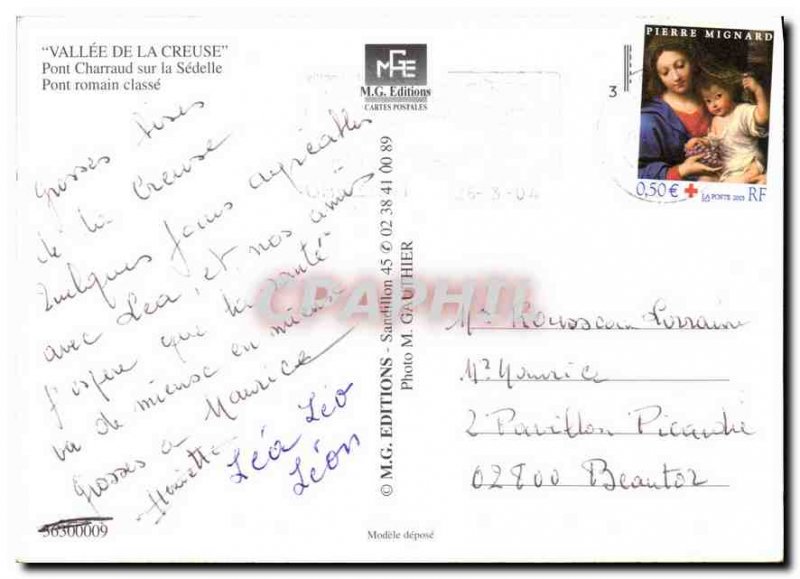 "VALLÉE DE LA CREUSE"
Pont Charraud sur la Sédelle
Pont romain classé
MGE
M.G. Editions
CARTES POSTALES
PIERRE MIGNARD
0,50€ LA POSTE 2003 RF
3
26-3-04
Grosses bises
de la Creuse
Quelques jours agréables
avec Léa, et nos amis
J'espère que ta santé
va de mieux en mieux
Grosses à Maurice
Léa Léo
Léon
CPAPHIL
© M.G. EDITIONS - Sandillon 45 ✆ 02 38 41 00 89
Photo M. GAUTHIER
Rousseau Lorraine
Mr Maurice
2 Pavillon Picardie
02800 Beautor
56300009
Modèle déposé